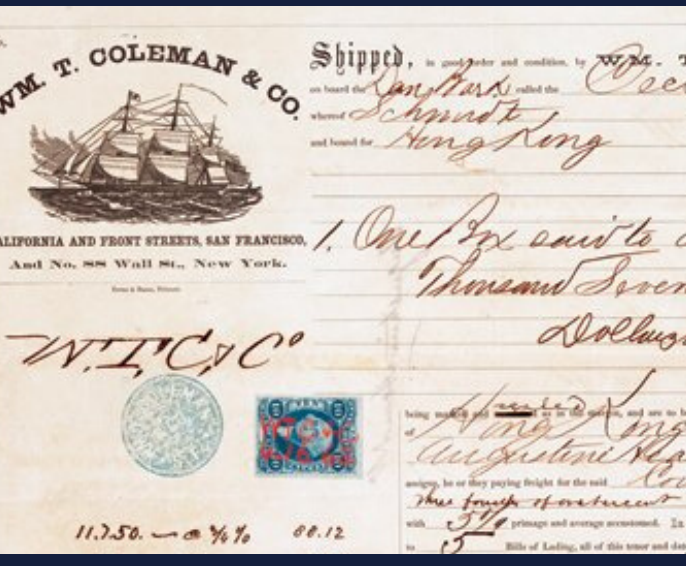 WM. T. COLEMAN & CO.
CALIFORNIA AND FRONT STREETS, SAN FRANCISCO,
And No. 88 Wall St., New York.
Shipped, in good order and condition, by WM. T
on board the Dan Bark called the
whereof Schmidt
and bound for Hong Kong
1. One Box said to
Thousand Seven
Dollars
being marked and as in the margin, and are to b
Hong Kong
Augustine Hea
assigns, he or they paying freight for the said
three fourths of one percent
with 5% primage and average accustomed. In
to 5 Bills of Lading, all of this tenor and dat
11.750. — @ ¾% 88.12